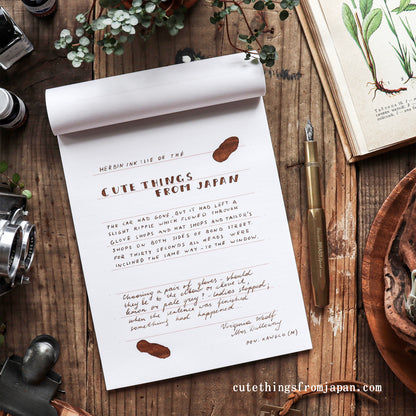 HERBIN INK LIE DE THÉ
CUTE THINGS
FROM JAPAN
THE CAR HAD GONE, BUT IT HAD LEFT A
SLIGHT RIPPLE WHICH FLOWED THROUGH
GLOVE SHOPS AND HAT SHOPS AND TAILOR'S
SHOPS ON BOTH SIDES OF BOND STREET.
FOR THIRTY SECONDS ALL HEADS WERE
INCLINED THE SAME WAY - TO THE WINDOW.
Choosing a pair of gloves - should
they be to the elbow or above it,
lemon or pale grey? - ladies stopped;
when the sentence was finished
something had happened.
Virginia Woolf
Mrs. Dalloway
PEN: KAWECO (M)
cutethingsfromjapan.com